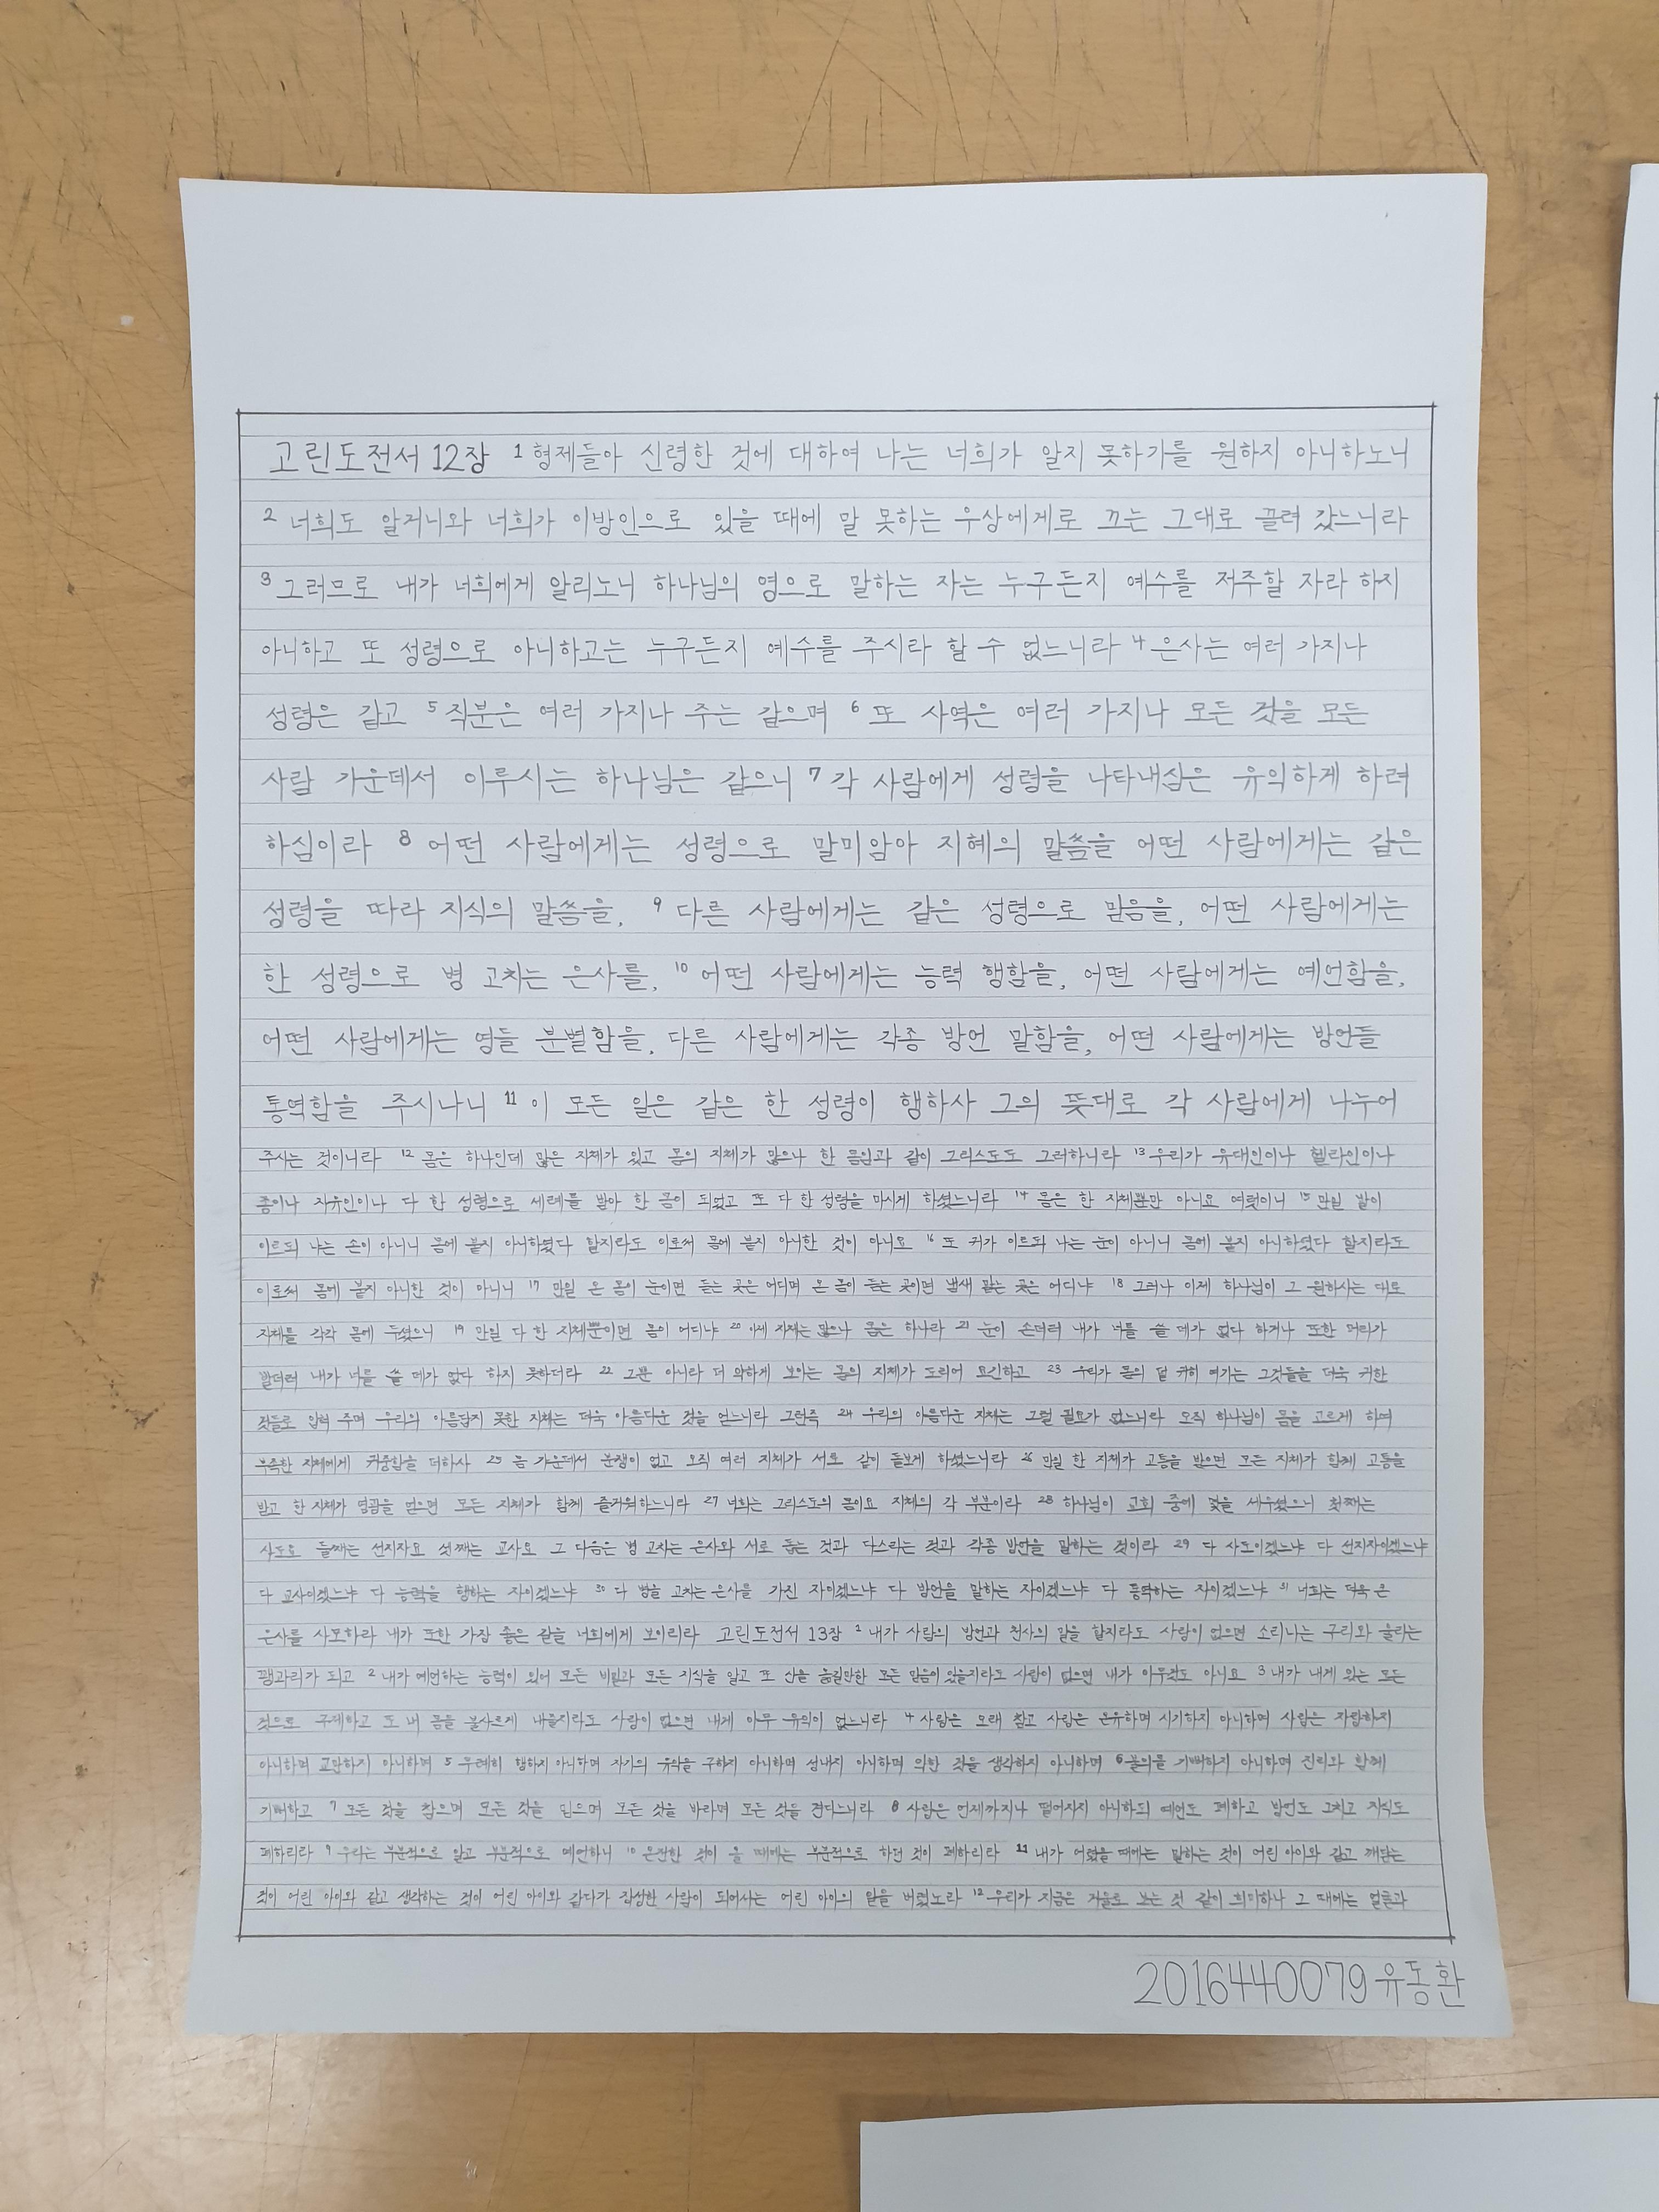 고린도전서 12장 1 형제들아 신령한 것에 대하여 나는 너희가 알지 못하기를 원하지 아니하노니
2 너희도 알거니와 너희가 이방인으로 있을 때에 말 못하는 우상에게로 끄는 그대로 끌려 갔느니라
3 그러므로 내가 너희에게 알리노니 하나님의 영으로 말하는 자는 누구든지 예수를 저주할 자라 하지
아니하고 또 성령으로 아니하고는 누구든지 예수를 주시라 할 수 없느니라 4 은사는 여러 가지나
성령은 같고 5 직분은 여러 가지나 주는 같으며 6 또 사역은 여러 가지나 모든 것을 모든
사람 가운데서 이루시는 하나님은 같으니 7 각 사람에게 성령을 나타내심은 유익하게 하려
하심이라 8 어떤 사람에게는 성령으로 말미암아 지혜의 말씀을 어떤 사람에게는 같은
성령을 따라 지식의 말씀을, 9 다른 사람에게는 같은 성령으로 믿음을, 어떤 사람에게는
한 성령으로 병 고치는 은사를, 10 어떤 사람에게는 능력 행함을, 어떤 사람에게는 예언함을,
어떤 사람에게는 영들 분별함을, 다른 사람에게는 각종 방언 말함을, 어떤 사람에게는 방언들
통역함을 주시나니 11 이 모든 일은 같은 한 성령이 행하사 그의 뜻대로 각 사람에게 나누어
주시는 것이니라 12 몸은 하나인데 많은 지체가 있고 몸의 지체가 많으나 한 몸임과 같이 그리스도도 그러하니라 13 우리가 유대인이나 헬라인이나
종이나 자유인이나 다 한 성령으로 세례를 받아 한 몸이 되었고 또 다 한 성령을 마시게 하셨느니라 14 몸은 한 지체뿐만 아니요 여럿이니 15 만일 발이
이르되 나는 손이 아니니 몸에 붙지 아니하였다 할지라도 이로써 몸에 붙지 아니한 것이 아니요 16 또 귀가 이르되 나는 눈이 아니니 몸에 붙지 아니하였다 할지라도
이로써 몸에 붙지 아니한 것이 아니니 17 만일 온 몸이 눈이면 듣는 곳은 어디며 온 몸이 듣는 곳이면 냄새 맡는 곳은 어디냐 18 그러나 이제 하나님이 그 원하시는 대로
지체를 각각 몸에 두셨으니 19 만일 다 한 지체뿐이면 몸이 어디냐 20 이제 지체는 많으나 몸은 하나라 21 눈이 손더러 내가 너를 쓸 데가 없다 하거나 또한 머리가
발더러 내가 너를 쓸 데가 없다 하지 못하더라 22 그뿐 아니라 더 약하게 보이는 몸의 지체가 도리어 요긴하고 23 우리가 몸의 덜 귀히 여기는 그것들을 더욱 귀한
것들로 입혀 주며 우리의 아름답지 못한 지체는 더욱 아름다운 것을 얻느니라 그런즉 24 우리의 아름다운 지체는 그럴 필요가 없느니라 오직 하나님이 몸을 고르게 하여
부족한 지체에게 귀중함을 더하사 25 몸 가운데서 분쟁이 없고 오직 여러 지체가 서로 같이 돌보게 하셨느니라 26 만일 한 지체가 고통을 받으면 모든 지체가 함께 고통을
받고 한 지체가 영광을 얻으면 모든 지체가 함께 즐거워하느니라 27 너희는 그리스도의 몸이요 지체의 각 부분이라 28 하나님이 교회 중에 몇을 세우셨으니 첫째는
사도요 둘째는 선지자요 셋째는 교사요 그 다음은 병 고치는 은사와 서로 돕는 것과 다스리는 것과 각종 방언을 말하는 것이라 29 다 사도이겠느냐 다 선지자이겠느냐
다 교사이겠느냐 다 능력을 행하는 자이겠느냐 30 다 병을 고치는 은사를 가진 자이겠느냐 다 방언을 말하는 자이겠느냐 다 통역하는 자이겠느냐 31 너희는 더욱 큰
은사를 사모하라 내가 또한 가장 좋은 길을 너희에게 보이리라 고린도전서 13장 1 내가 사람의 방언과 천사의 말을 할지라도 사랑이 없으면 소리나는 구리와 울리는
꽹과리가 되고 2 내가 예언하는 능력이 있어 모든 비밀과 모든 지식을 알고 또 산을 옮길만한 모든 믿음이 있을지라도 사랑이 없으면 내가 아무것도 아니요 3 내가 내게 있는 모든
것으로 구제하고 또 내 몸을 불사르게 내줄지라도 사랑이 없으면 내게 아무 유익이 없느니라 4 사랑은 오래 참고 사랑은 온유하며 시기하지 아니하며 사랑은 자랑하지
아니하며 교만하지 아니하며 5 무례히 행하지 아니하며 자기의 유익을 구하지 아니하며 성내지 아니하며 악한 것을 생각하지 아니하며 6 불의를 기뻐하지 아니하며 진리와 함께
기뻐하고 7 모든 것을 참으며 모든 것을 믿으며 모든 것을 바라며 모든 것을 견디느니라 8 사랑은 언제까지나 떨어지지 아니하되 예언도 폐하고 방언도 그치고 지식도
폐하리라 9 우리는 부분적으로 알고 부분적으로 예언하니 10 온전한 것이 올 때에는 부분적으로 하던 것이 폐하리라 11 내가 어렸을 때에는 말하는 것이 어린 아이와 같고 깨닫는
것이 어린 아이와 같고 생각하는 것이 어린 아이와 같다가 장성한 사람이 되어서는 어린 아이의 일을 버렸노라 12 우리가 지금은 거울로 보는 것 같이 희미하나 그 때에는 얼굴과
2016440079 유동환